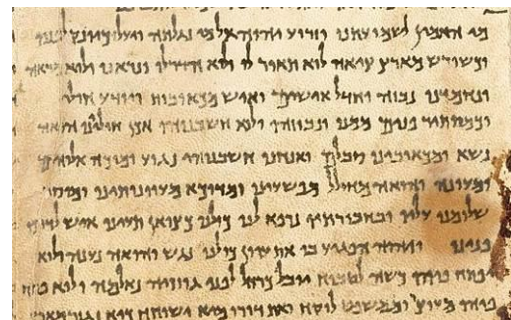 מי האמין לשמועתנו וזרוע יהוה אל מי נגלתה ויעל כיונק לפניו
וכשורש מארץ ציה לוא תואר לו ולוא הדר לו ונראנו ולוא מראה
ונחמדנו נבזה וחדל אישים ואיש מכאובות ויודע חולי
וכמסתר פנים ממנו ונבוזהו ולוא חשבנוהו אכן חוליינו הואה
נשא ומכאובינו סבלם ואנחנו חשבנוהו נגוע ומוכה אלוהים
ומעונה והואה מחולל מפשעינו ומדוכא מעוונותינו ומוסר
שלומנו עליו ובחבורתיו נרפא לנו כולנו כצואן תעינו איש לדרכו
פנינו ויהוה הפגיע בו את עוון כולנו נגש והואה נענה ולוא
יפתח פיהו כשה לטבוח יובל כרחל לפני גוזזיה נאלמה ולוא פתח
פיהו מעוצר ומשפט לוקח ואת דורו מיא ישוחח כיא נגזר מארץ